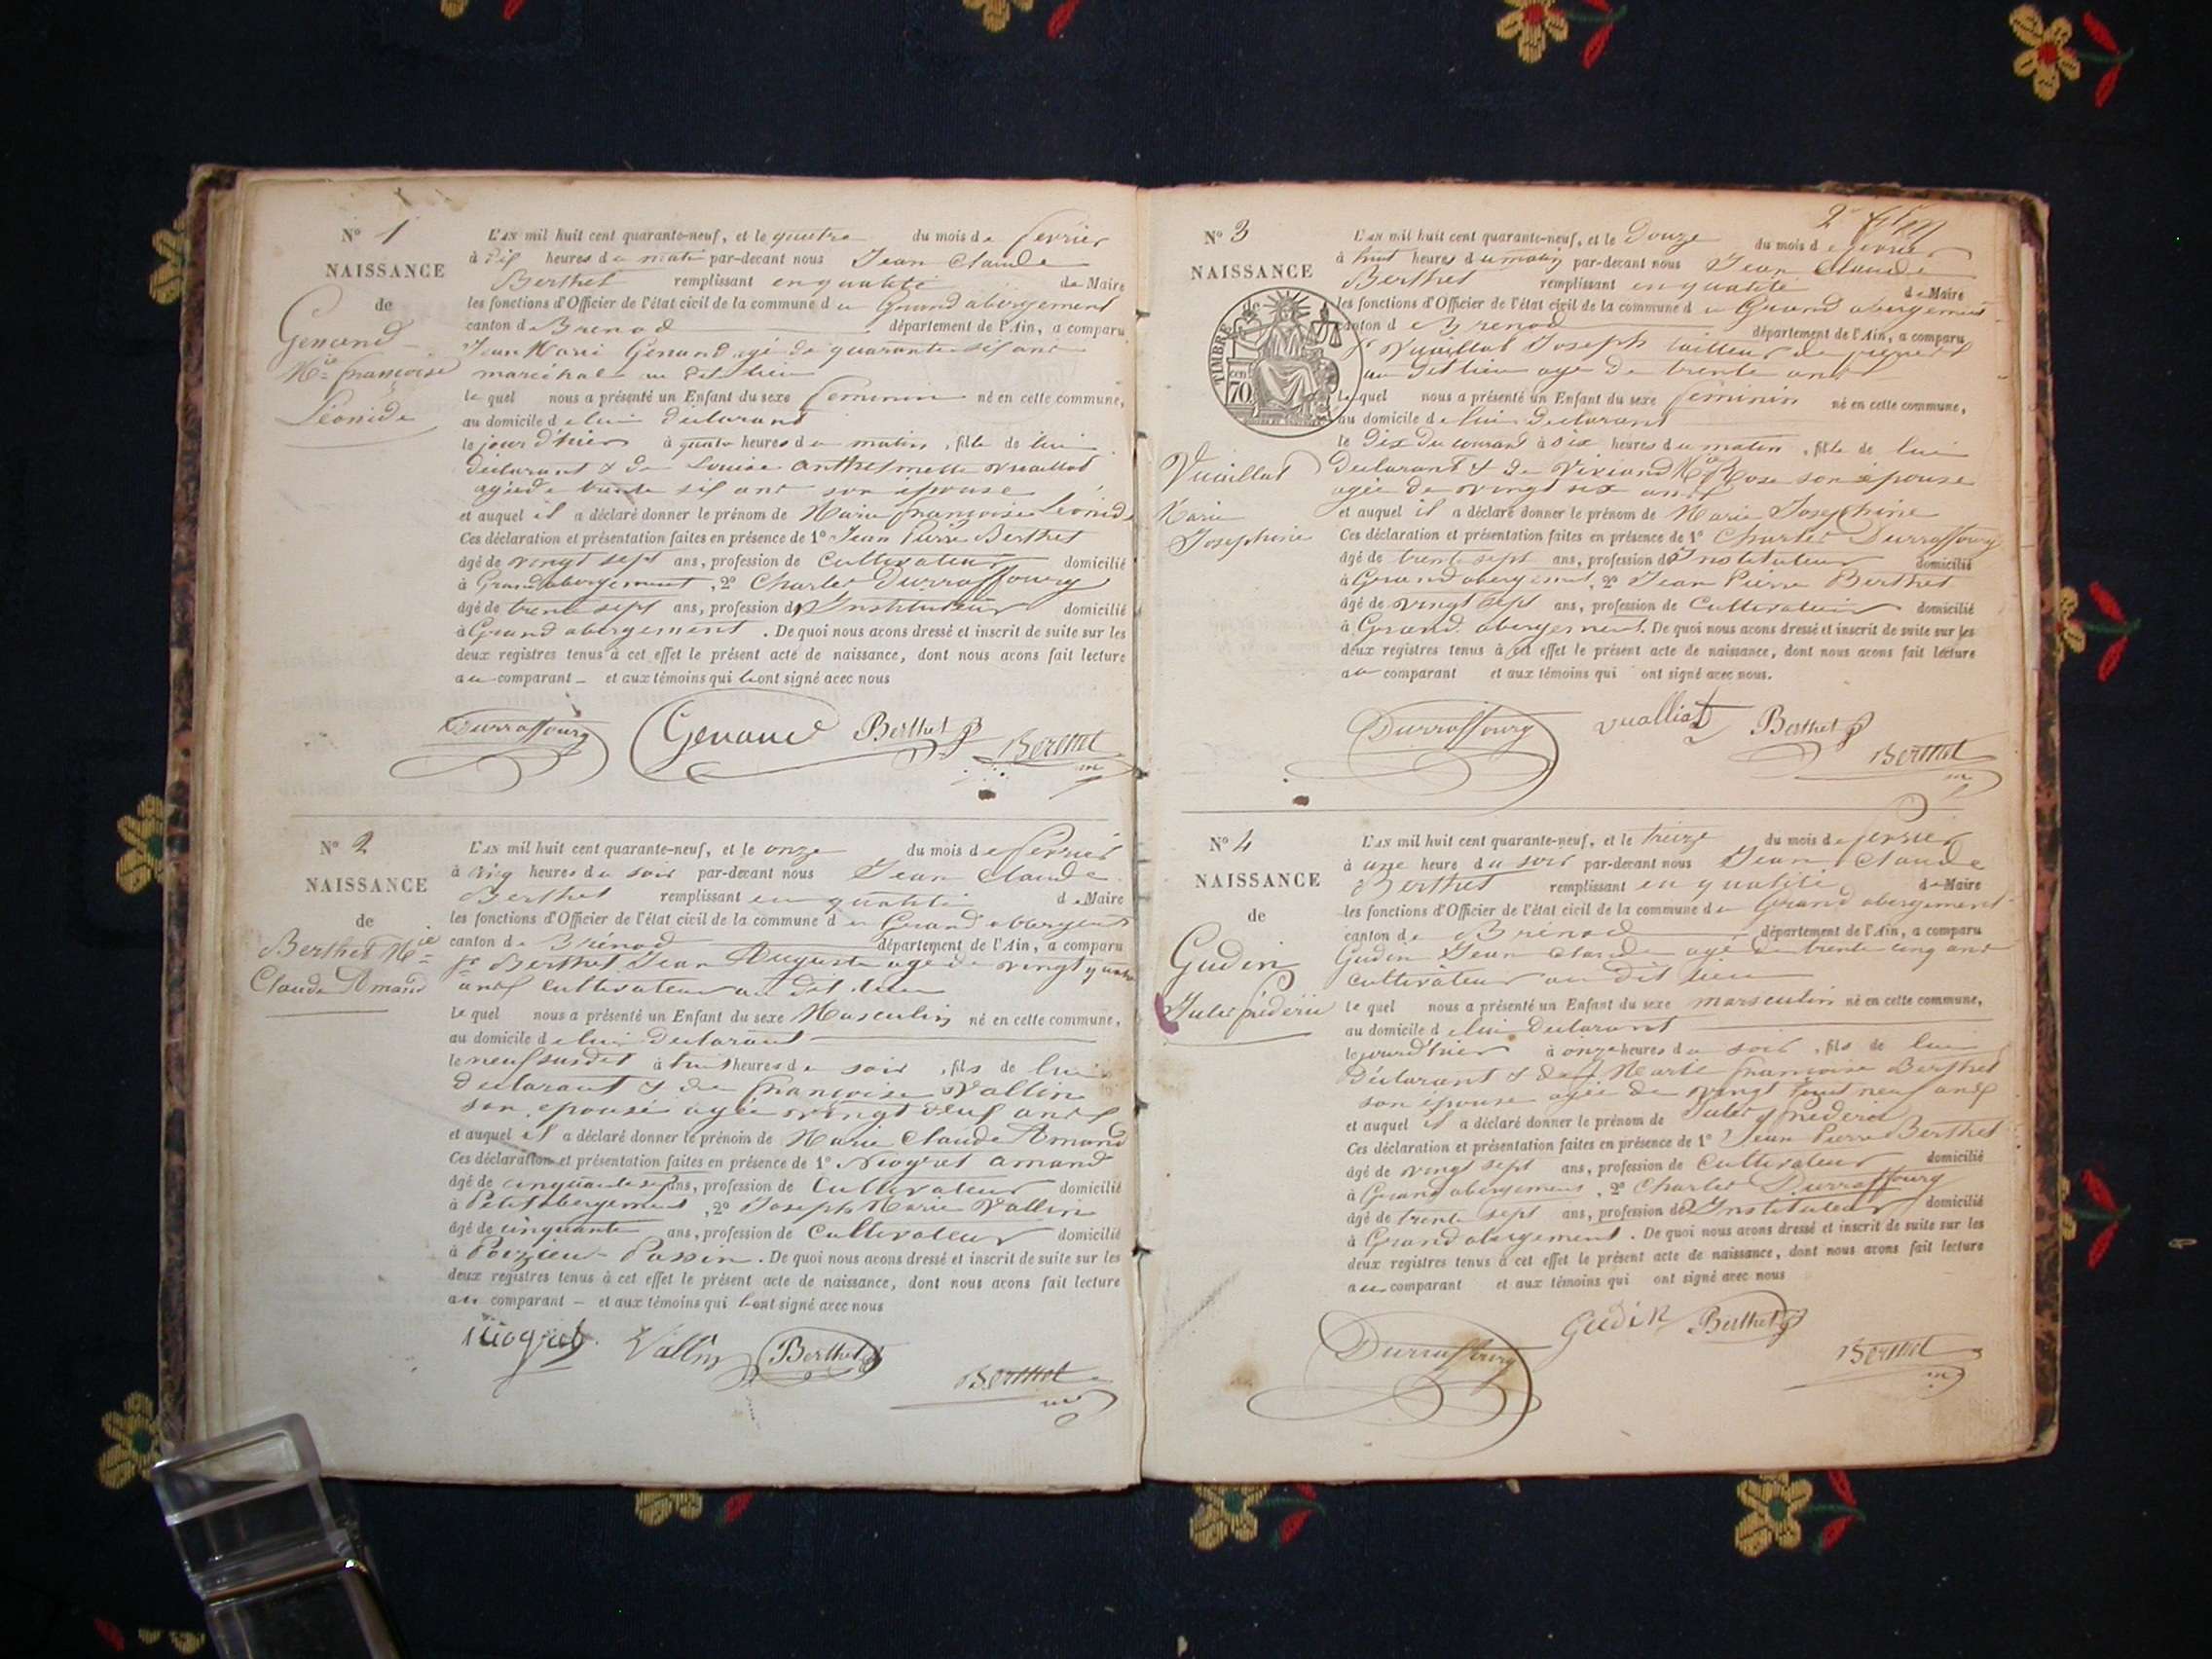 N° 1
NAISSANCE
de
Genand
Mie françoise
Léonide
L'AN mil huit cent quarante-neuf, et le quatre du mois de fevrier
à dix heures du matin par-devant nous Jean Claude
Berthet remplissant en qualité de Maire
les fonctions d'Officier de l'état civil de la commune du Grand abergement
canton de Brenod département de l'Ain, a comparu
Jean Marie Genand agé de quarante six ans
maréchal au dit lieu
lequel nous a présenté un Enfant du sexe feminin né en cette commune,
au domicile de lui déclarant
le jour d'hier à quatre heures du matin, fille de lui
déclarant & de Louise Anthelmette Vuaillat
agée de trente six ans son épouse
et auquel il a déclaré donner le prénom de Marie françoise Léonide
Ces déclaration et présentation faites en présence de 1° Jean Pierre Berthet
âgé de vingt sept ans, profession de Cultivateur domicilié
à Grand abergement, 2° Charles Durraffourg
âgé de trente sept ans, profession d'Instituteur domicilié
à Grand abergement. De quoi nous avons dressé et inscrit de suite sur les
deux registres tenus à cet effet le présent acte de naissance, dont nous avons fait lecture
au comparant et aux témoins qui ont signé avec nous
Durraffourg Genand Berthet Berthet
N° 2
NAISSANCE
de
Berthet Mie
Claude Amand
L'AN mil huit cent quarante-neuf, et le onze du mois de fevrier
à cinq heures du soir par-devant nous Jean Claude
Berthet remplissant en qualité de Maire
les fonctions d'Officier de l'état civil de la commune du Grand abergement
canton de Brénod département de l'Ain, a comparu
Sr Berthet Jean Auguste agé de vingt quatre
ans cultivateur au dit lieu
Lequel nous a présenté un Enfant du sexe Masculin né en cette commune,
au domicile de lui déclarant
le neuf susdit à huit heures du soir, fils de lui
déclarant & de françoise Vallin
son epouse agée vingt neuf ans
et auquel il a déclaré donner le prénom de Marie Claude Amand
Ces déclaration et présentation faites en présence de 1° Niogret amand
âgé de cinquante ans, profession de Cultivateur domicilié
à Petit abergement, 2° Joseph Marie Vallin
âgé de cinquante ans, profession de Cultivateur domicilié
à Passin. De quoi nous avons dressé et inscrit de suite sur les
deux registres tenus à cet effet le présent acte de naissance, dont nous avons fait lecture
au comparant et aux témoins qui ont signé avec nous
Niogret Vallin Berthet Berthet
N° 3
NAISSANCE
de
TIMBRE
70
Vuaillat
Marie
Josephine
L'AN mil huit cent quarante-neuf, et le Douze du mois de fevrier
à huit heures du matin par-devant nous Jean Claude
Berthet remplissant en qualité de Maire
les fonctions d'Officier de l'état civil de la commune du Grand abergement
canton de Brenod département de l'Ain, a comparu
Sr Vuaillat Joseph tailleur de pierres
au dit lieu agé de trente ans
Lequel nous a présenté un Enfant du sexe feminin né en cette commune,
au domicile de lui déclarant
le dix du courant à six heures du matin, fille de lui
declarant & de Viviand Mie Rose son épouse
agée de vingt six ans
et auquel il a déclaré donner le prénom de Marie Josephine
Ces déclaration et présentation faites en présence de 1° Charles Durraffourg
âgé de trente sept ans, profession d'Instituteur domicilié
à Grand abergement, 2° Jean Pierre Berthet
âgé de vingt sept ans, profession de Cultivateur domicilié
à Grand abergement. De quoi nous avons dressé et inscrit de suite sur les
deux registres tenus à cet effet le présent acte de naissance, dont nous avons fait lecture
au comparant et aux témoins qui ont signé avec nous.
Durraffourg vualliat Berthet Berthet
N° 4
NAISSANCE
de
Gudin
Jules frédéric
L'AN mil huit cent quarante-neuf, et le treize du mois de fevrier
à une heure du soir par-devant nous Jean Claude
Berthet remplissant en qualité de Maire
les fonctions d'Officier de l'état civil de la commune du Grand abergement
canton de Brenod département de l'Ain, a comparu
Gudin Jean claude agé de trente cinq ans
cultivateur au dit lieu
lequel nous a présenté un Enfant du sexe masculin né en cette commune,
au domicile de lui déclarant
le jour d'hier à onze heures du soir, fils de lui
déclarant & de Marie françoise Berthet
son épouse agée de vingt neuf ans
et auquel il a déclaré donner le prénom de Jules frédéric
Ces déclaration et présentation faites en présence de 1° Jean Pierre Berthet
âgé de vingt sept ans, profession de Cultivateur domicilié
à Grand abergement, 2° Charles Durraffourg
âgé de trente sept ans, profession d'Instituteur domicilié
à Grand abergement. De quoi nous avons dressé et inscrit de suite sur les
deux registres tenus à cet effet le présent acte de naissance, dont nous avons fait lecture
au comparant et aux témoins qui ont signé avec nous
Durraffourg Gudin Berthet Berthet